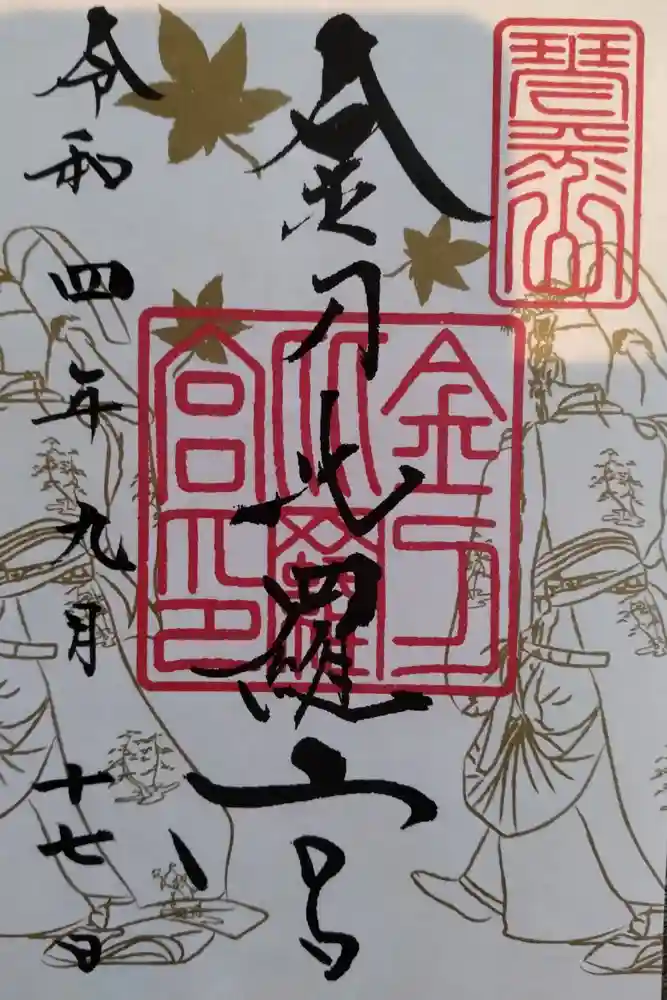 琴平山
金刀比羅宮
金刀比羅宮印
令和四年九月十七日